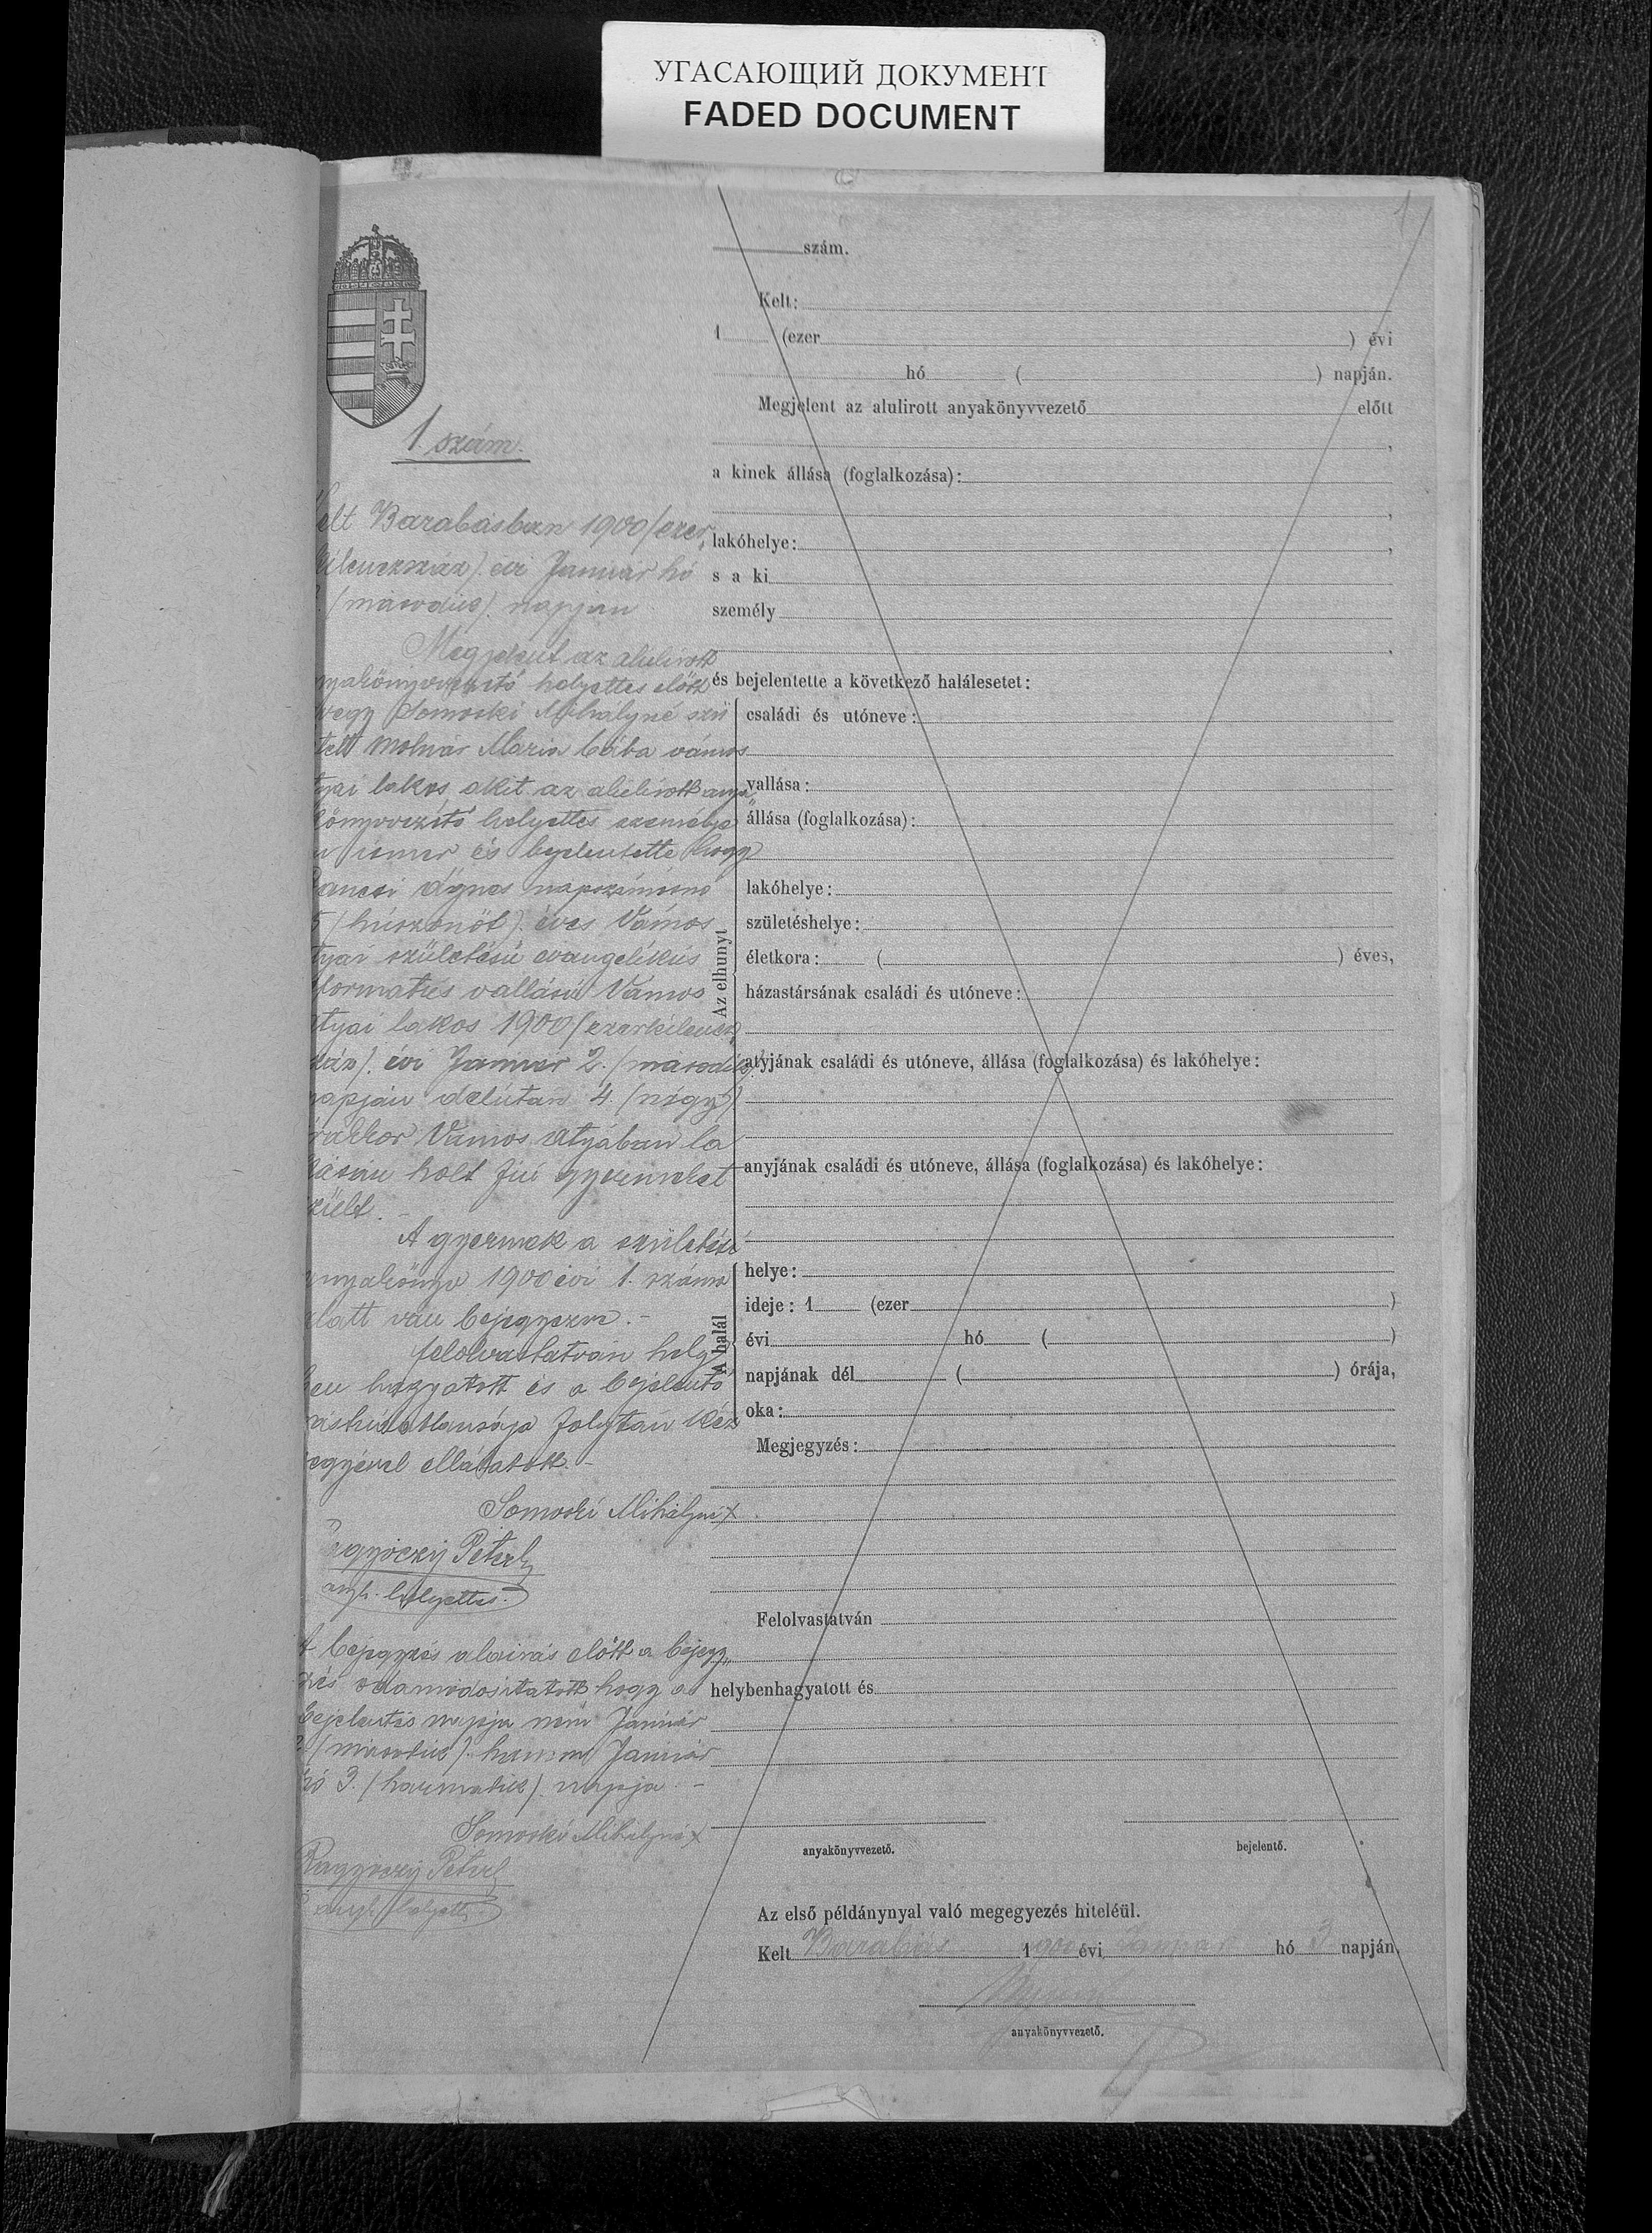 УГАСАЮЩИЙ ДОКУМЕНТ
FADED DOCUMENT
1
1. szám.
elt Barabásban 1900 (ezer,
kilenczszáz). évi Január hó
(második). napján
Megjelent az alulirott
nyakönyvvezető helyettes előtt
vegy Somoski Mihályné szü
tett Molnár Mária bába vámos
tyai lakos akit az alulirott anya„
könyvvezető helyettes személye
n ismer és bejelentette hogy
ancsi Ágnes napszámosnő
5 (húszonöt). éves Vámos
tyai születésü evangélikus
formatus vallásu Vámos
tyai lakos 1900 (ezerkilencz,
száz). évi Január 2. (második).
napján délután 4. (négy)
rakkor Vámos atyában la
kásán holt fiú gyermeket
szült. –
A gyermek a születési
nyakönyv 1900 évi 1. száma
alatt van bejegyezve. –
felolvastatván hely
ben hagyatott és a bejelentő
irástudatlansága folytán kéz
jegyével elláttatott. –
Somoski Mihályné x
agyóczy Péter
anyk. helyettes.
A bejegyzés aláirás előtt a bejegy„
zés odamódosittatott hogy a
bejelentés napja nem Január
2 (második). hanem Január
hó 3. (harmadik). napja. –
Somoski Mihályné x
Ragyóczy Péter
anyk. helyettes.
szám.
Kelt:
1 (ezer ) évi
hó ( ) napján.
Megjelent az alulirott anyakönyvvezető előtt
,
a kinek állása (foglalkozása):
,
lakóhelye: ,
s a ki
személy
,
és bejelentette a következő halálesetet:
Az elhunyt
családi és utóneve:
vallása:
állása (foglalkozása):
lakóhelye:
születéshelye:
életkora: ( ) éves,
házastársának családi és utóneve:
atyjának családi és utóneve, állása (foglalkozása) és lakóhelye:
anyjának családi és utóneve, állása (foglalkozása) és lakóhelye:
A halál
helye:
ideje: 1 (ezer )
évi hó ( )
napjának dél ( ) órája,
oka:
Megjegyzés:
Felolvastatván
helybenhagyatott és
anyakönyvvezető. bejelentő.
Az első példánynyal való megegyezés hiteléül.
Kelt Barabás 1900 évi Január hó 3 napján.
anyakönyvvezető.